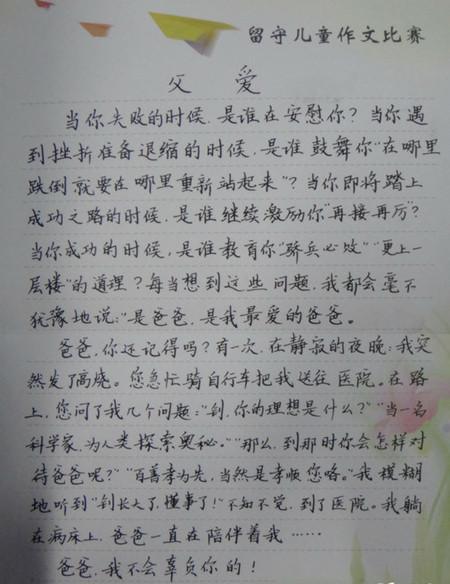 留守儿童作文比赛
父 爱
当你失败的时候,是谁在安慰你?当你遇
到挫折准备退缩的时候,是谁鼓舞你"在哪里
跌倒就要在哪里重新站起来"?当你即将踏上
成功之路的时候,是谁继续激励你"再接再厉?
当你成功的时候,是谁教育你"骄兵必败""更上一
层楼"的道理?每当想到这些问题,我都会毫不
犹豫地说:"是爸爸,是我最爱的爸爸。
爸爸,你还记得吗?有一次,在静寂的夜晚:我突
然发了高烧。您急忙骑自行车把我送往医院。在路
上,您问了我几个问题:"钊,你的理想是什么?""当一名
科学家,为人类探索奥秘。""那么,到那时你会怎样对
待爸爸呢?""百善孝为先,当然是孝顺您咯。"我模糊
地听到"钊长大了,懂事了!"不知不觉,到了医院。我躺
在病床上,爸爸一直在陪伴着我……
爸爸,我不会辜负你的!